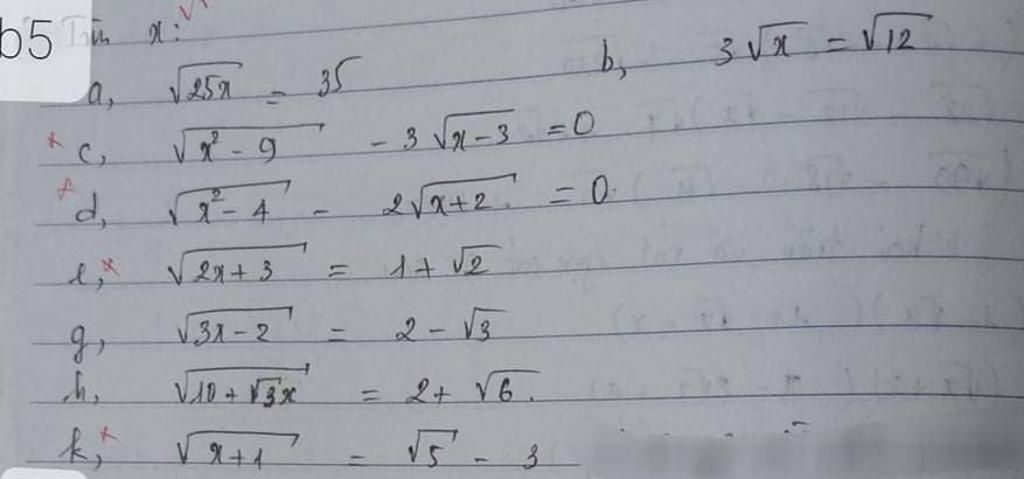 b5 Tìm x:
a, √25x = 35 b, 3√x = √12
* c, √x² - 9 - 3√x-3 = 0
* d, √x² - 4 - 2√x+2 = 0
e,* √2x+3 = 1+√2
g, √3x-2 = 2-√3
h, √10+√3x = 2+√6.
k,* √x+1 = √5 - 3